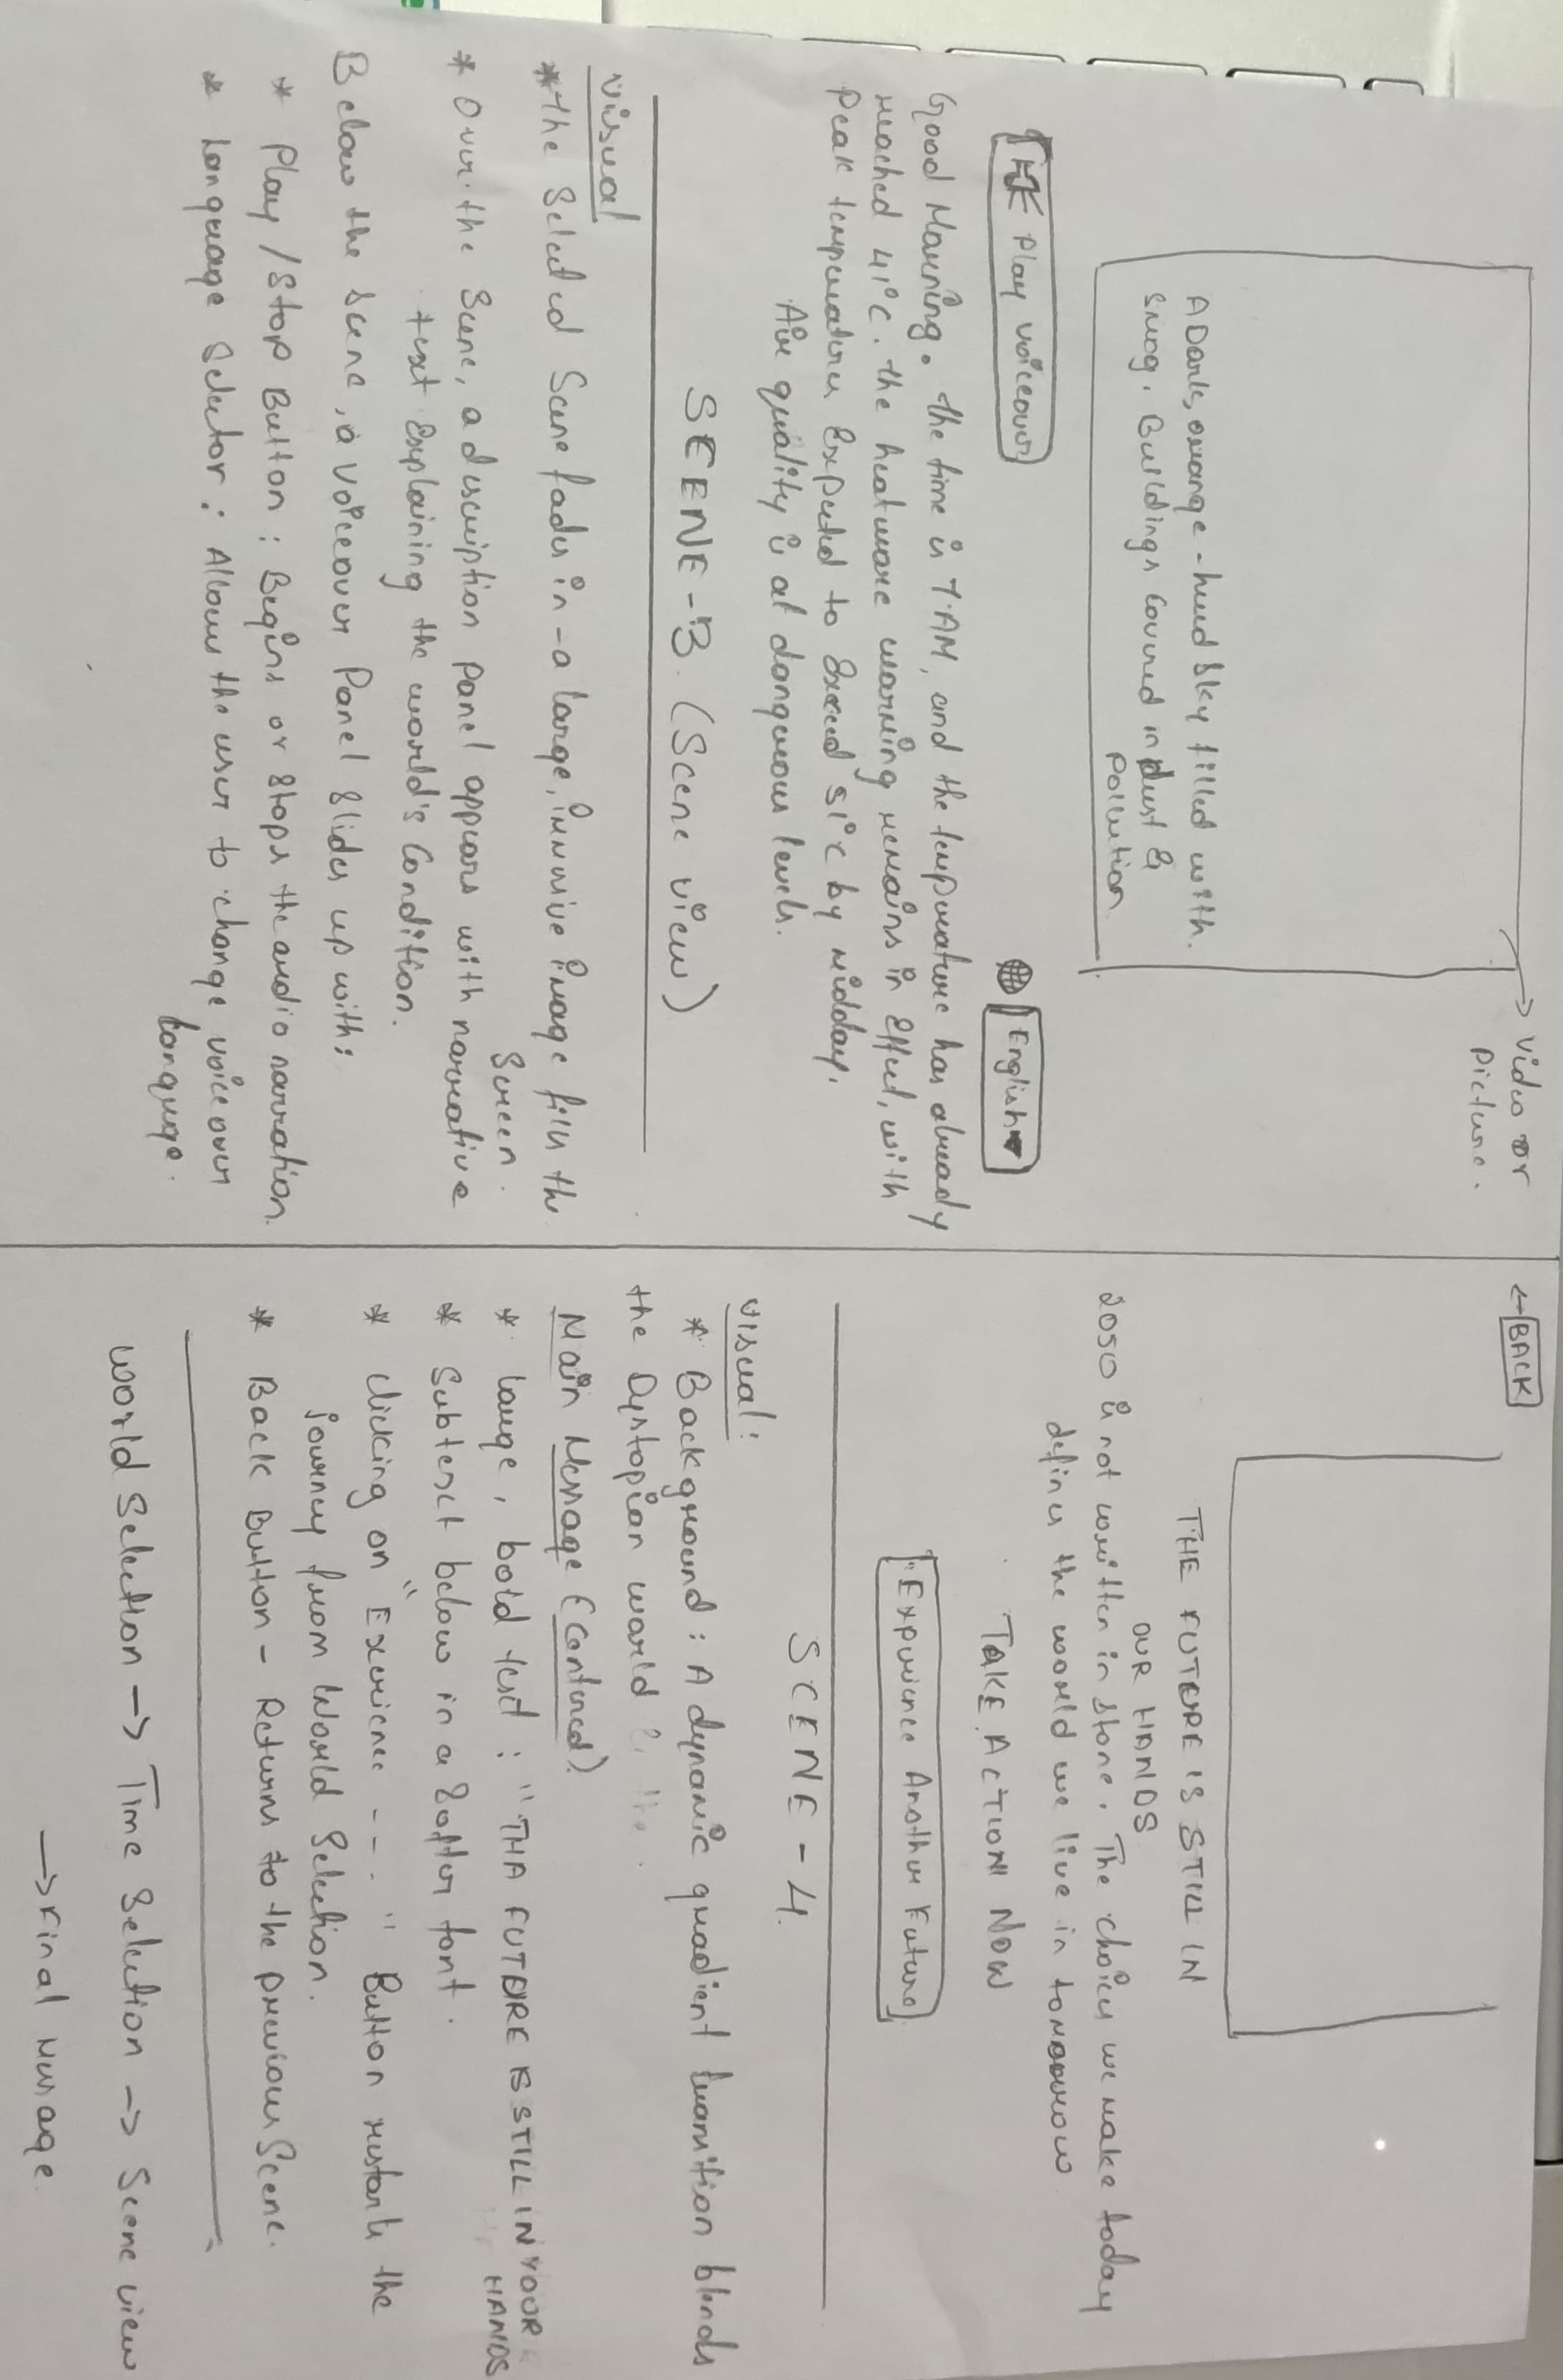 → Video or
Picture.
A Dark, orange-hued sky filled with
smog. Buildings covered in dust &
Pollution.
Play voiceover
English
Good Morning. the time is 7AM, and the temperature has already
reached 41°C. the heatware warning remains in effect, with
Peak temperature Expected to Exceed 51°C by midday.
Air quality is at dangerous levels.
SCENE-3. (Scene view)
Visual
* the Selected Scene fades in - a large, immersive image fills the
Screen.
* Over the Scene, a description Panel appears with narrative
text Explaining the world's Condition.
Below the Scene, a Voiceover Panel Slides up with:
* Play/Stop Button: Begins or Stops the audio narration.
* Language Selector: Allows the user to change voiceover
language.
← BACK
THE FUTURE IS STILL IN
OUR HANDS
2050 is not written in stone. The choices we make today
defines the world we live in tomorrow
TAKE ACTION NOW
"Experience Another Future
SCENE - 4.
Visual:
* Background: A dynamic gradient transition blends
the Dystopian world
Main Message (Centered)
* large, bold text: "THA FUTURE IS STILL IN YOUR
HANDS
* Subtext below in a Softer font.
* clicking on "Exerience - - - " Button restarts the
journey from World Selection.
* Back Button - Returns to the previous Scene.
World Selection → Time Selection → Scene view
→ Final message